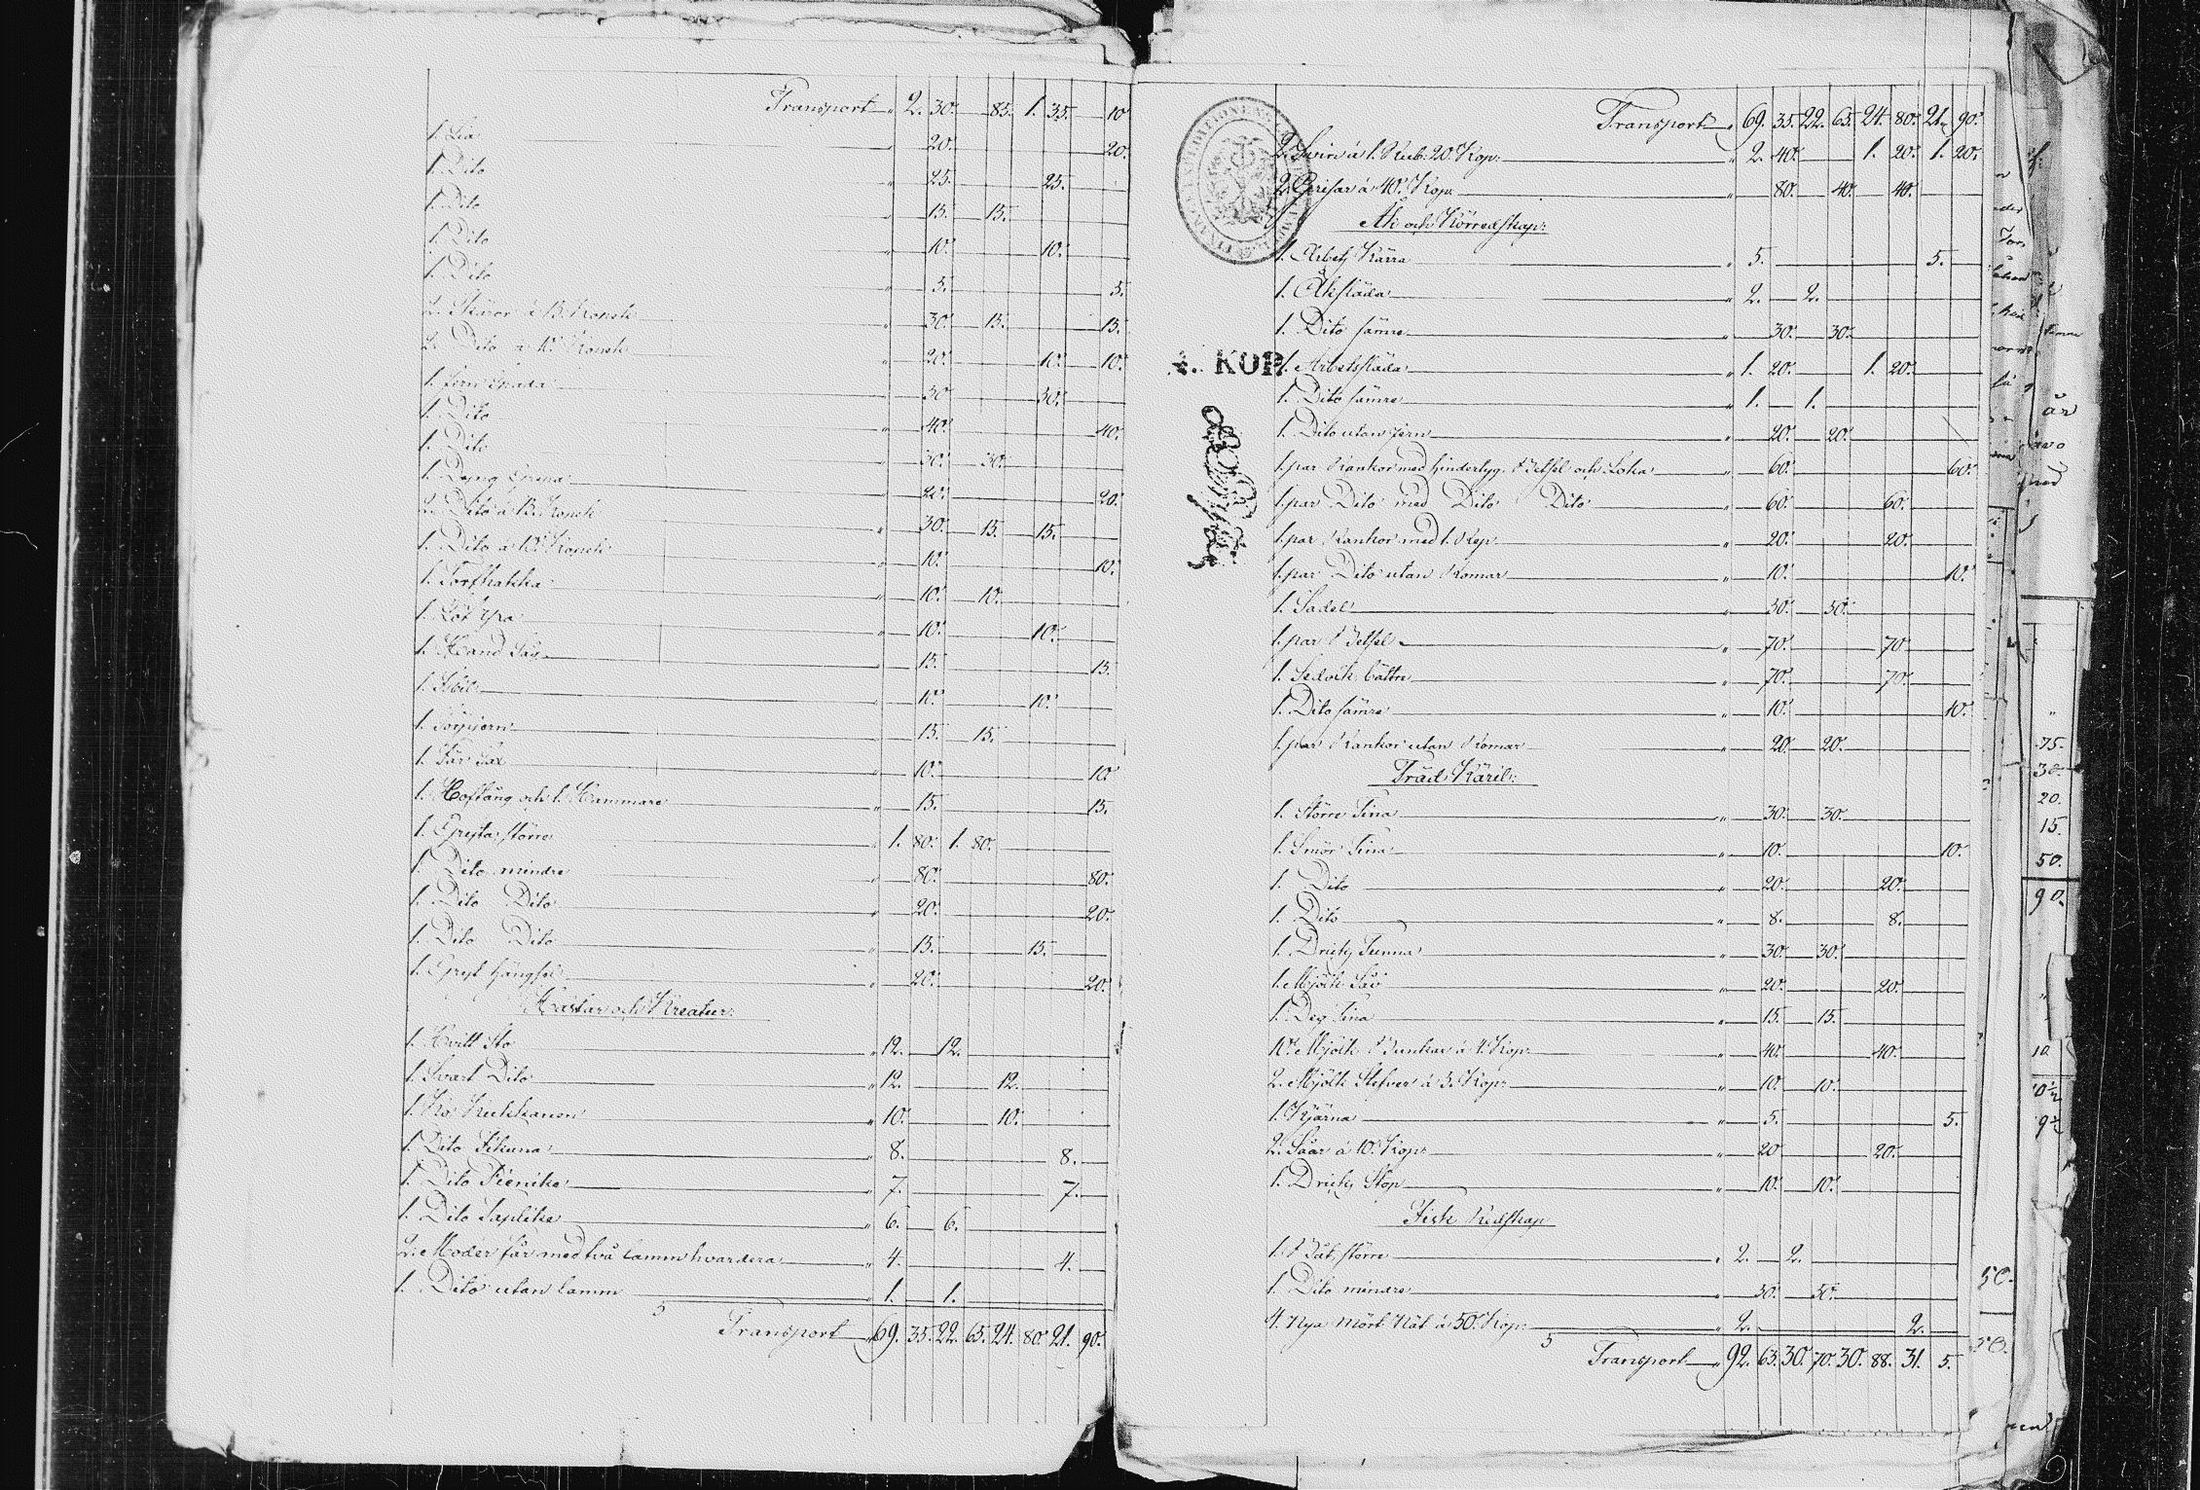 Transport " 2. 30. 85. 1. 35. 10
1. Lia " 20. 20.
1. Dito " 25. 25.
1. Dito " 15. 15.
1. Dito " 10. 10.
1. Dito " 5. 5.
2. Skäror á 15. Kopek " 30. 15. 15.
2. Dito á 10. Kopek " 20. 10. 10.
1. Jern Spada " 30 30.
1. Dito " 40. 40.
1. Dito " 30. 30.
1. " 20. 20.
2. Dito á 15. Kopek " 30. 15. 15.
1. Dito á 10. Kopek " 10. 10.
1. Torfhakka " 10. 10.
1. " 10. 10.
1. Hand Såg " 15. 15.
1. " 10. 10.
1. " 15. 15.
1. Får Sax " 10. 10.
1. Hoftång och 1. Hammare " 15. 15.
1. Gryta, större " 1. 80. 1. 80.
1. Dito mindre " 80. 80.
1. Dito Dito " 20. 20.
1. Dito Dito " 15. 15.
1. Gryt hängsel " 20. 20.
Hästar och Kreatur:
1. Hvitt Sto " 12. 12.
1. Svart Dito " 12. 12.
1. Ko " 10. 10.
1. Dito " 8. 8.
1. Dito " 7. 7.
1. Dito " 6. 6.
2. Moder får med två lamm hvardera " 4. 4.
1. Dito utan lamm " 1. 1.
S Transport " 69. 35. 22. 65. 24. 80. 21. 90.
Transport " 69. 35. 22. 65. 24. 80. 21. 90.
2. Svin á 1. Rub. 20. Kop: " 2. 40. 1. 20. 1. 20.
2. Grisar á 40. Kop: " 80. 40. 40.
Åk och Körredskap:
1. Arbets Kärra " 5. 5.
1. Åksläda " 2. 2.
1. Dito sämre " 30. 30.
4. KOP.
1. Arbetssläda " 1. 20. 1. 20.
1. Dito sämre " 1. 1.
1. Dito utan jern " 20. 20.
1. par Rankor med hindertyg. Betsel och Loka " 60. 60.
1. par Dito med Dito Dito " 60. 60.
1. par Rankor med 1. Rep " 20. 20.
1. par Dito utan Romar " 10. 10.
1. Sadel " 50. 50.
1. par Betsel " 70. 70.
1. Selvek bättre " 70. 70.
1. Dito sämre " 10. 10.
1. par Rankor utan Romar " 20. 20.
Träd Käril:
1. Större Tina " 30. 30.
1. Smör Tina " 10. 10.
1. Dito " 20. 20.
1. Dito " 8. 8.
1. Dricks Tunna " 30. 30.
1. Mjölk Så " 20. 20.
1. Deg Tina " 15. 15.
10. Mjölk Bunkar á 4. Kop: " 40. 40.
2. Mjölk Stefver á 5. Kop: " 10. 10.
1. Kjärna " 5. 5.
2. Såar á 10. Kop: " 20 20.
1. Dricks Stop " 10. 10.
Fisk Redskap
1. Båt större " 2. 2.
1. Dito mindre " 50. 50.
4. Nya Mört Nät á 50. Kop: " 2. 2.
S Transport " 92. 63. 30. 70. 30. 88. 31. 5.
75.
30.
20.
15.
50.
90.